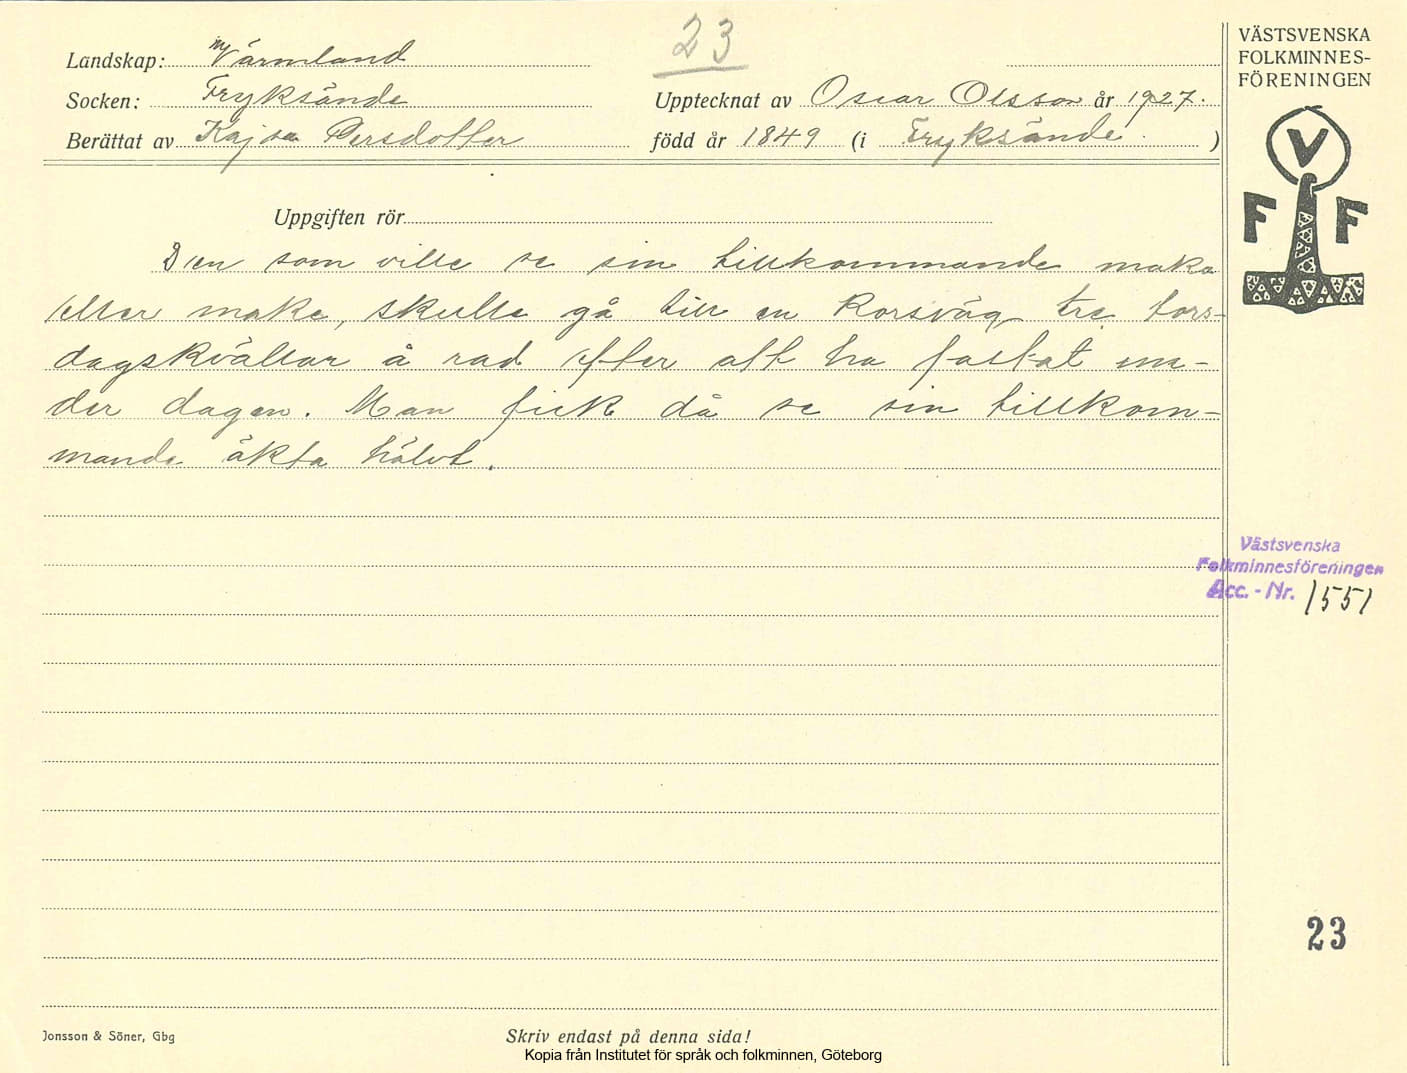 23
Landskap: Värmland
Socken: Fryksände
Upptecknat av Oscar Olsson år 1927.
Berättat av Kajsa Persdotter
född år 1849 (i Fryksände.)
Uppgiften rör
Den som ville se sin tillkommande maka
eller make, skulle gå till en korsväg tre tors-
dagskvällar å rad efter att ha fastat un-
der dagen. Man fick då se sin tillkom-
mande äkta hälvt.
VÄSTSVENSKA
FOLKMINNES-
FÖRENINGEN
V
F F
Västsvenska
Folkminnesföreningen
Acc. - Nr. 1551
23
Jonsson & Söner, Gbg
Skriv endast på denna sida!
Kopia från Institutet för språk och folkminnen, Göteborg